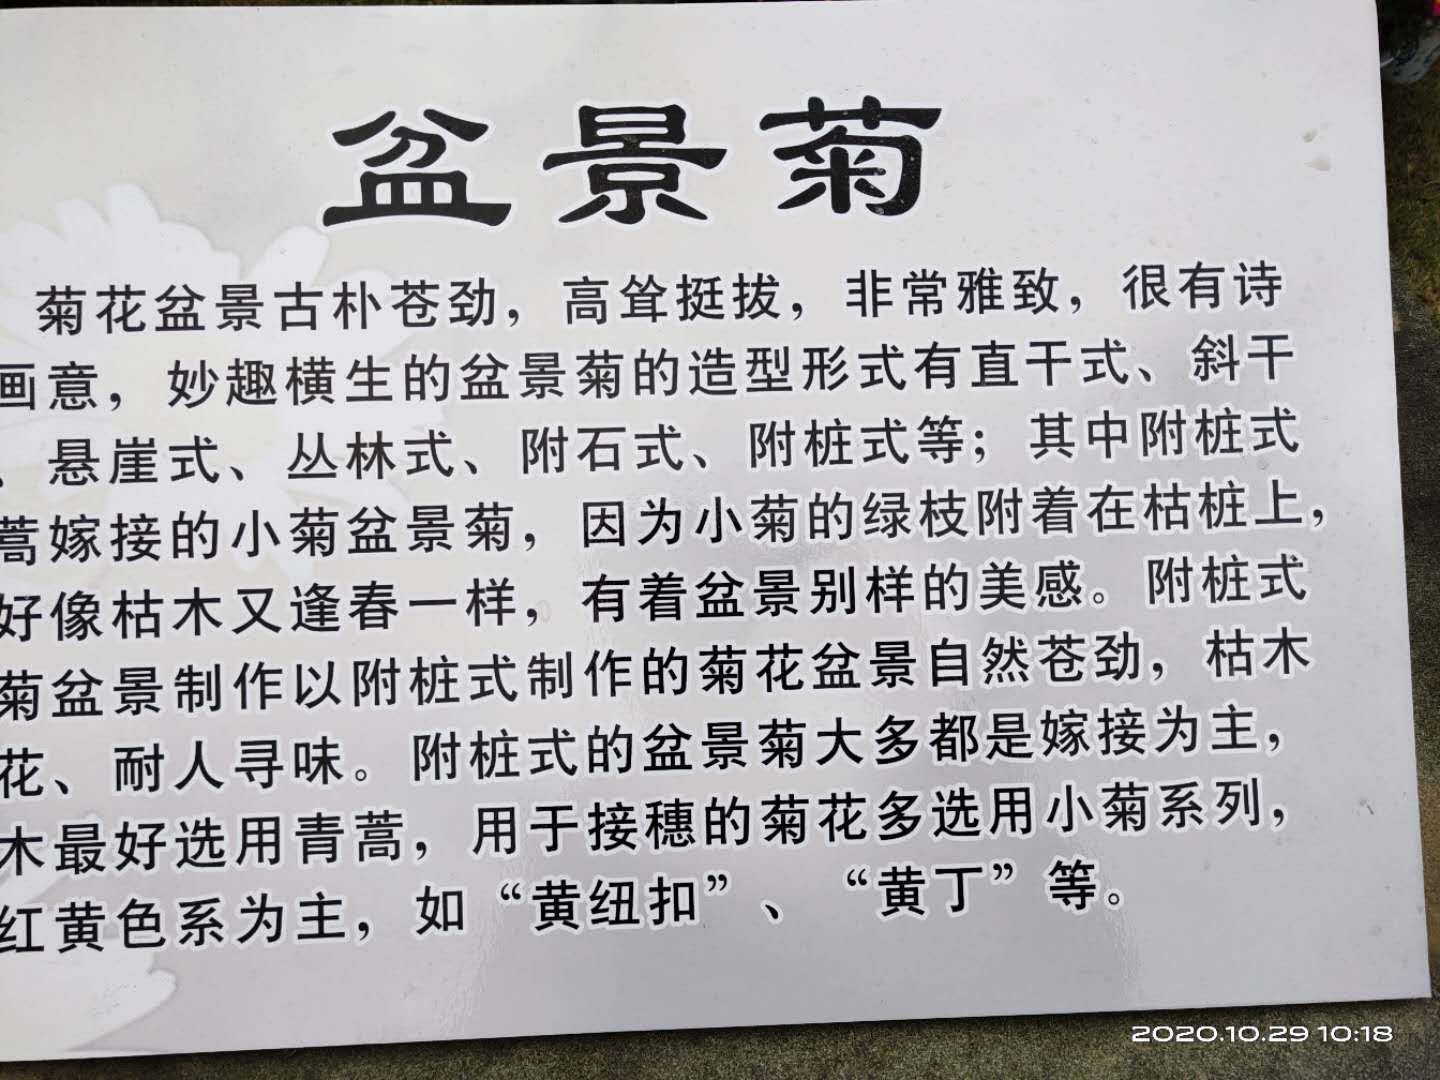 盆景菊
菊花盆景古朴苍劲，高耸挺拔，非常雅致，很有诗
画意，妙趣横生的盆景菊的造型形式有直干式、斜干
、悬崖式、丛林式、附石式、附桩式等；其中附桩式
蒿嫁接的小菊盆景菊，因为小菊的绿枝附着在枯桩上，
好像枯木又逢春一样，有着盆景别样的美感。附桩式
菊盆景制作以附桩式制作的菊花盆景自然苍劲，枯木
花、耐人寻味。附桩式的盆景菊大多都是嫁接为主，
木最好选用青蒿，用于接穗的菊花多选用小菊系列，
红黄色系为主，如“黄纽扣”、“黄丁”等。
2020.10.29 10:18